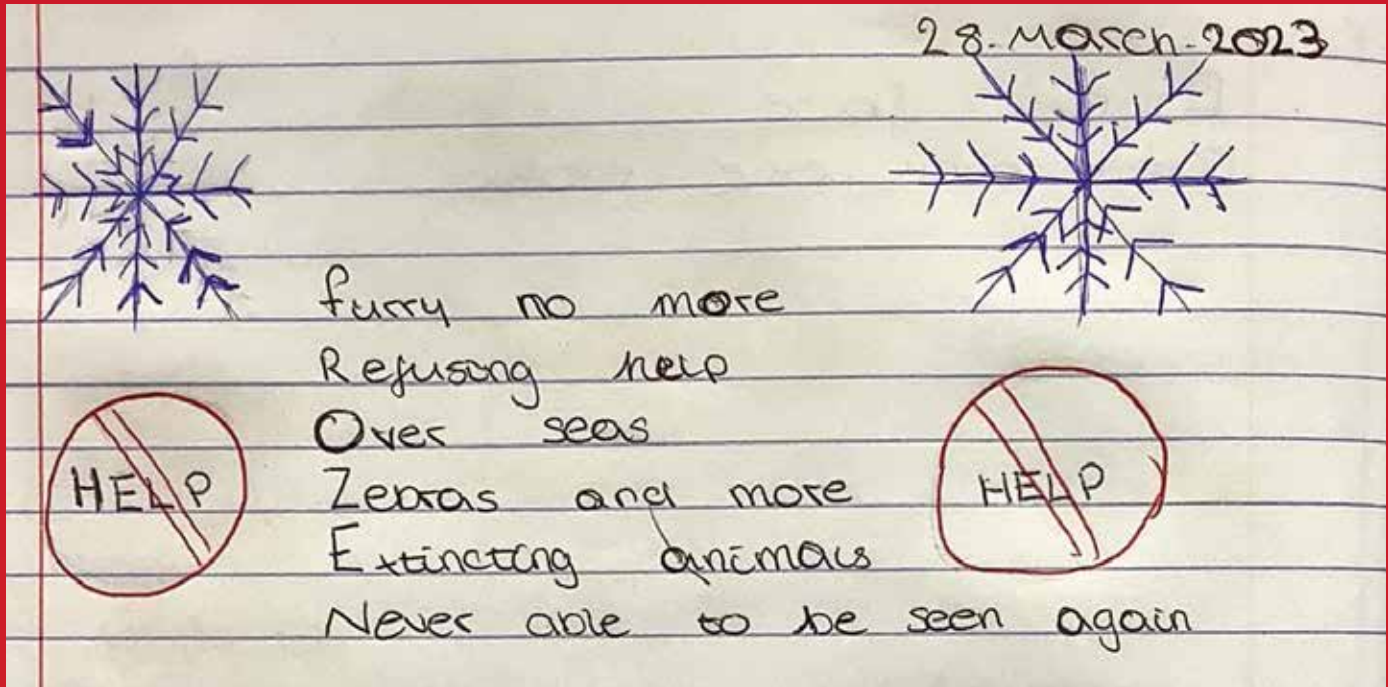 28. March. 2023
furry no more
Refusing help
Over seas
HELP
HELP
Zebras and more
Extincting animals
Never able to be seen again